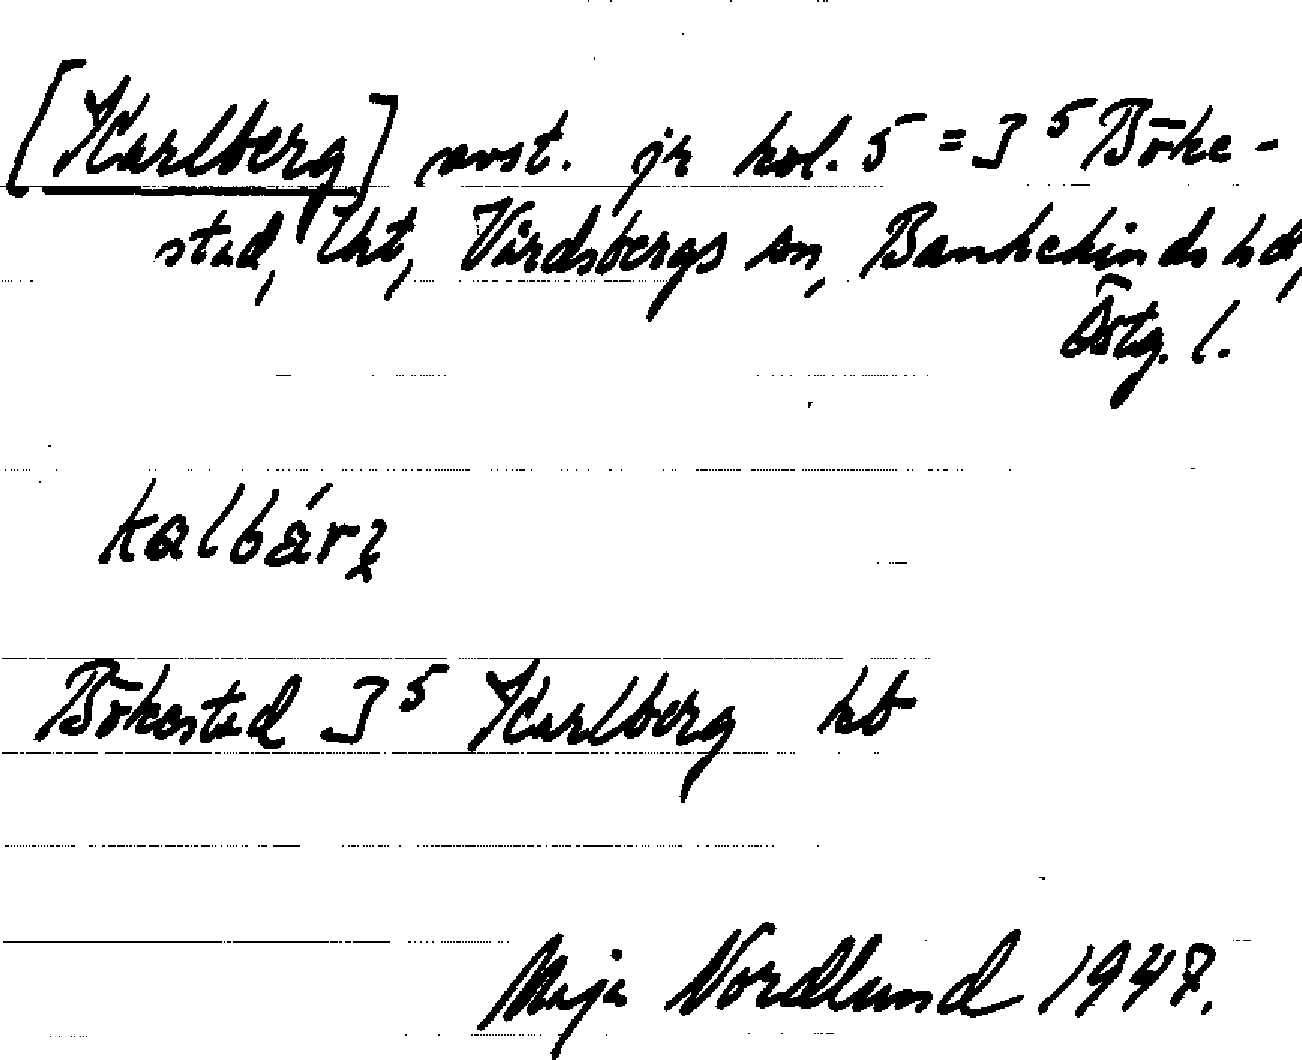 [Karlberg] avst. jr kol. 5 = J⁵ Böke-
stad, lht, Vårdsbergs sn, Bankekinds hd,
Östg. l.
kalbárʒ
Bökestad J⁵ Karlberg kb
Maja Nordlund 1947.